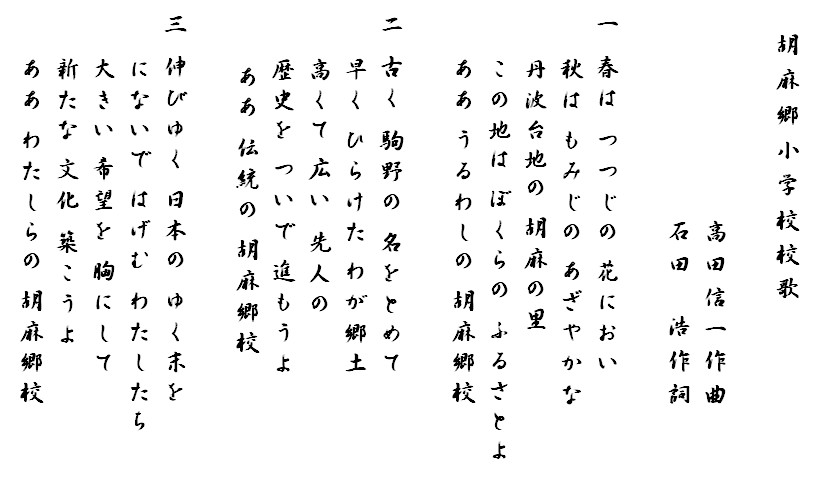 胡麻郷小学校校歌
高田信一作曲
石田　浩作詞
一　春は　つつじの　花におい
秋は　もみじの　あざやかな
丹波台地の　胡麻の里
この地は　ぼくらの　ふるさとよ
ああ　うるわしの　胡麻郷校
二　古く　駒野の　名をとめて
早く　ひらけた　わが郷土
高くて　広い　先人の
歴史を　ついで　進もうよ
ああ　伝統の　胡麻郷校
三　伸びゆく　日本の　ゆく末を
にないで　はげむ　わたしたち
大きい　希望を　胸にして
新たな　文化　築こうよ
ああ　わたしらの　胡麻郷校